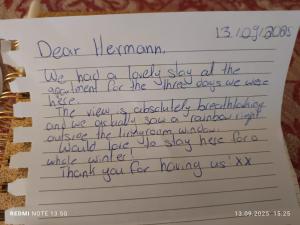 13.09.2025
Dear Hermann,
We had a lovely stay at the
apartment for the three days we were
here.
The view is absolutely breathtaking
and we actually saw a rainbow right
outside the livingroom window.
Would love to stay here for a
whole winter!
Thank you for having us! xx
REDMI NOTE 13 5G
13.09.2025 15:25